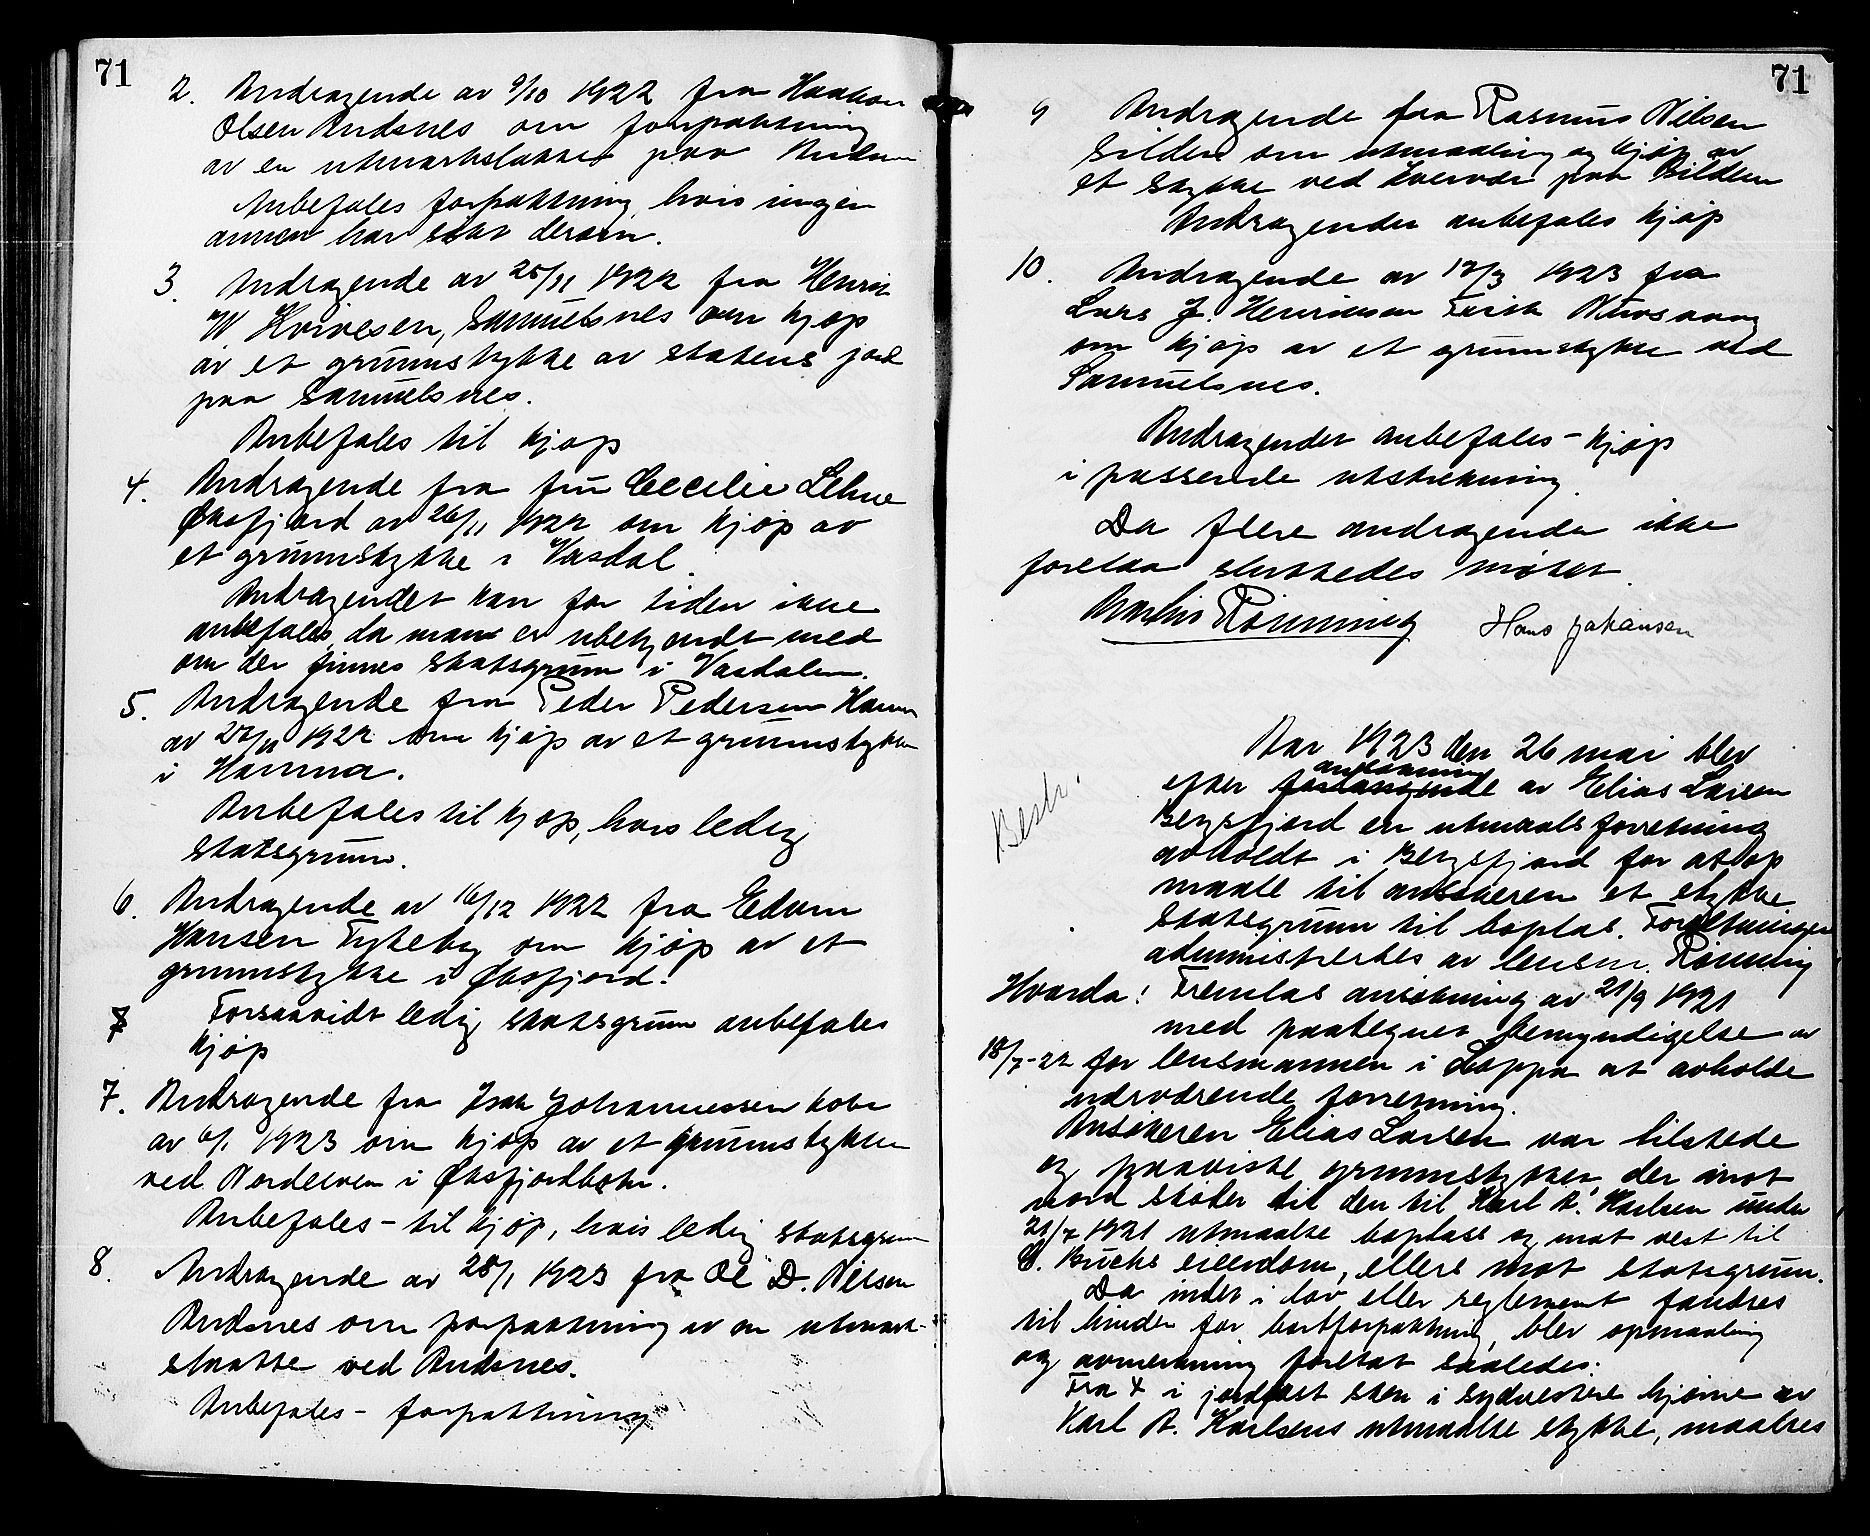 71
2. Andragende av 9/10 1922 fra Haakon
Olsen Andsnes om forpaktning
av en utmarkslokke paa Andsnes
Anbefales forpaktning, hvis ingen
annen har slaat dersom.
3. Andragende av 25/11 1922 fra Henrik
W. Kvivesen, Samuelsnes om kjøp
av et grunnstykke av statens jord
paa Samuelsnes.
Anbefales til kjøp
4. Andragende fra fru Cecelie Lehne
Øksfjord av 26/11 1922 om kjøp av
et grunnstykke i Vasdal.
Andragendet kan for tiden ikke
anbefales, da man er ubekjendt med
om der finnes statsgrunn i Vasdalen.
5. Andragende fra Peder Pedersen Hamn
av 27/11 1922 om kjøp av et grunnstykke
i Hamna.
Anbefales til kjøp, hvis ledig
statsgrunn.
6. Andragende av 16/12 1922 fra Edvin
Hansen Tykeby om kjøp av et
grunnstykke i Øksfjord.
7 Forsaavidt ledig statsgrunn anbefales
kjøp
7. Andragende fra Isak Johannessen
av 6/1 1923 om kjøp av et grunnstykke
ved Nordelven i Øksfjordbotn.
Anbefales - til kjøp, hvis ledig statsgrunn
8. Andragende av 28/1 1923 fra Ole D. Nilsen
Andsnes om forpaktning av en utmark-
slaatte ved Andsnes.
Anbefales - forpaktning
71
9 Andragende fra Rasmus Nilsen
Silden om utmaaling og kjøp av
et stykke ved paa Silden
Andragendet anbefales kjøp
10. Andragende av 12/3 1923 fra
Lars J. Henriksen
om kjøp av et grunnstykke ved
Samuelsnes.
Andragendet anbefales - kjøp
i passende utstrekning.
Da flere andragender ikke
forelaa sluttedes møtet.
Martin Rönning Hans Johansen
Aar 1923 den 26 mai blev
ansøkning
efter forlangende av Elias Larsen
Bergsfjord en utmaalsforretning
avholdt i Bergsfjord for at op
maale til ansøkeren et stykke
Bestr.
statsgrunn til boplas. Forretningen
administrertes av lensm. Rönning
Hvorda! Fremlas ansøkning av 21/9 1921
med paategnet bemyndigelse av
18/7-22 for lensmannen i Loppa at avholde
nærværende forretning.
Ansøkeren Elias Larsen var tilstede
og paaviste grunnstykket der imot
nord støter til den til Karl A. Karlsen under
21/7 1921 utmaalte boplass og mot vest til
C. Buchs eiendom, ellers mot statsgrunn.
Da intet i lov eller reglement fandtes
til hinder for bortforpaktning, blev opmaaling
og avmerkning foretat saaledes:
Fra X i jordfast sten i sydvestere hjørne av
Karl A. Karlsens utmaalte stykke, maaltes